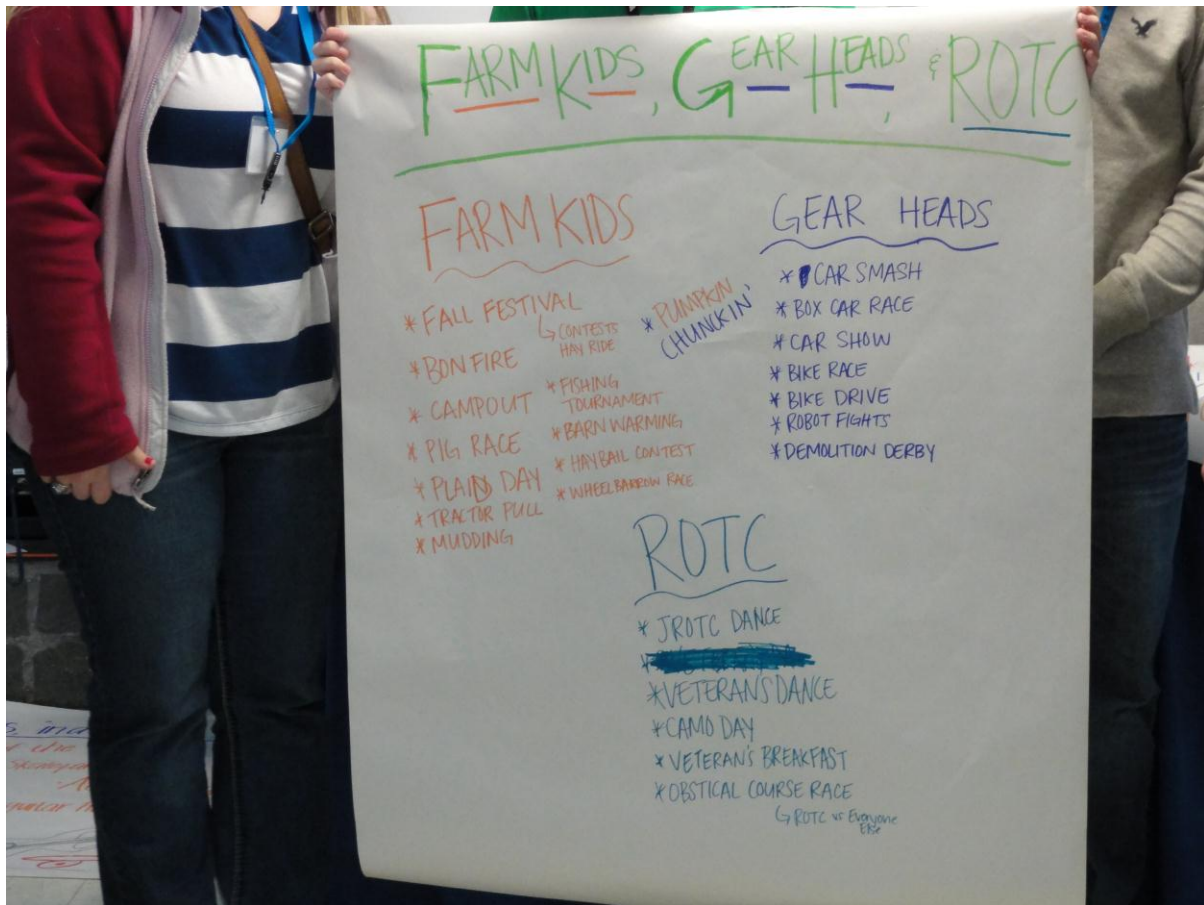 FARM KIDS, GEAR HEADS, & ROTC
FARM KIDS
* FALL FESTIVAL
↳ CONTESTS
HAY RIDE
* BONFIRE
* CAMPOUT
* PIG RACE
* PLAID DAY
* TRACTOR PULL
* MUDDING
* FISHING
TOURNAMENT
* BARN WARMING
* HAYBAIL CONTEST
* WHEELBARROW RACE
* PUMPKIN
CHUNCKIN'
GEAR HEADS
* CAR SMASH
* BOX CAR RACE
* CAR SHOW
* BIKE RACE
* BIKE DRIVE
* ROBOT FIGHTS
* DEMOLITION DERBY
ROTC
* JROTC DANCE
* VETERAN'S DANCE
* CAMO DAY
* VETERAN'S BREAKFAST
* OBSTICAL COURSE RACE
↳ ROTC vs Everyone
Else
the